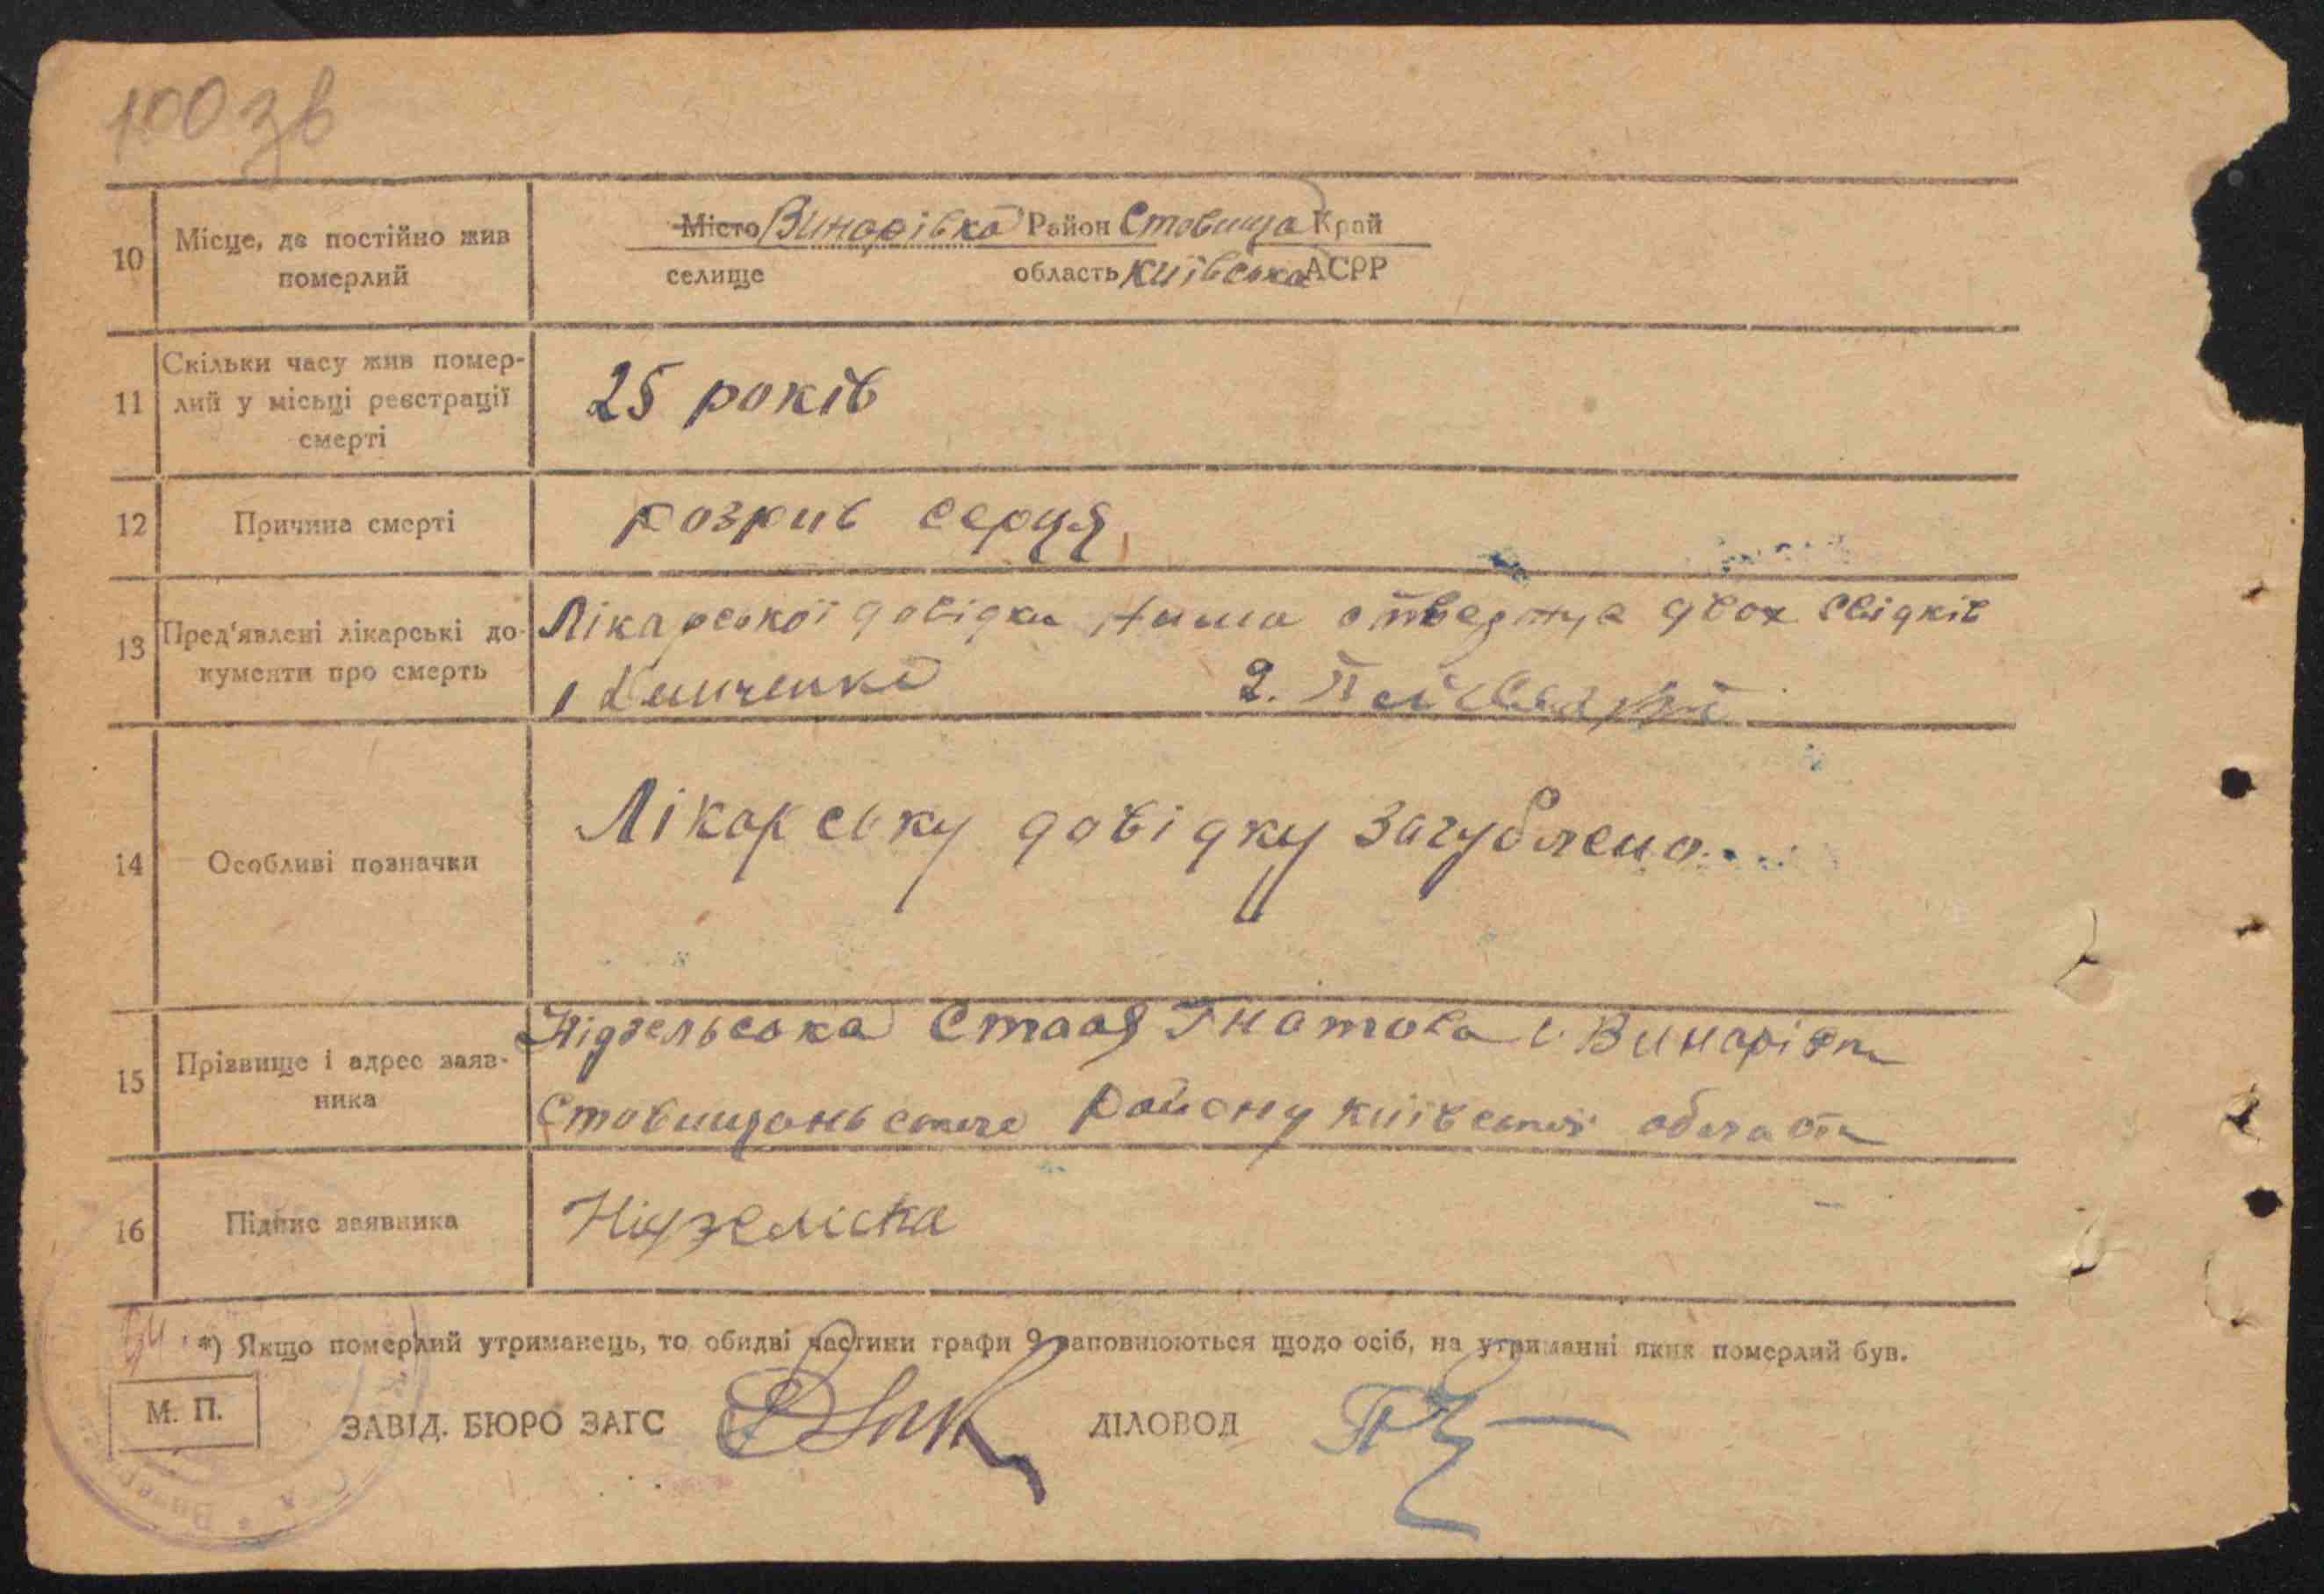 100 зв
10 Місце, де постійно жив померлий
Місто Винарівка Район Ставища Край
селище область Київська АСРР
11 Скільки часу жив помер-
лий у місьці реєстрації
смерті
25 років
12 Причина смерті
розрив серця
13 Пред'явлені лікарські до-
кументи про смерть
Лікарської довідки двох свідків
1 2.
14 Особливі позначки
Лікарську довідку загублено
15 Прізвище і адрес заяв-
ника
Нідзельська Гнатова с. Винарівки
району київської області
16 Підпис заявника
*) Якщо померлий утриманець, то обидві частини графи 9 заповнюються щодо осіб, на утриманні яких померлий був.
М. П.
ЗАВІД. БЮРО ЗАГС ДІЛОВОД